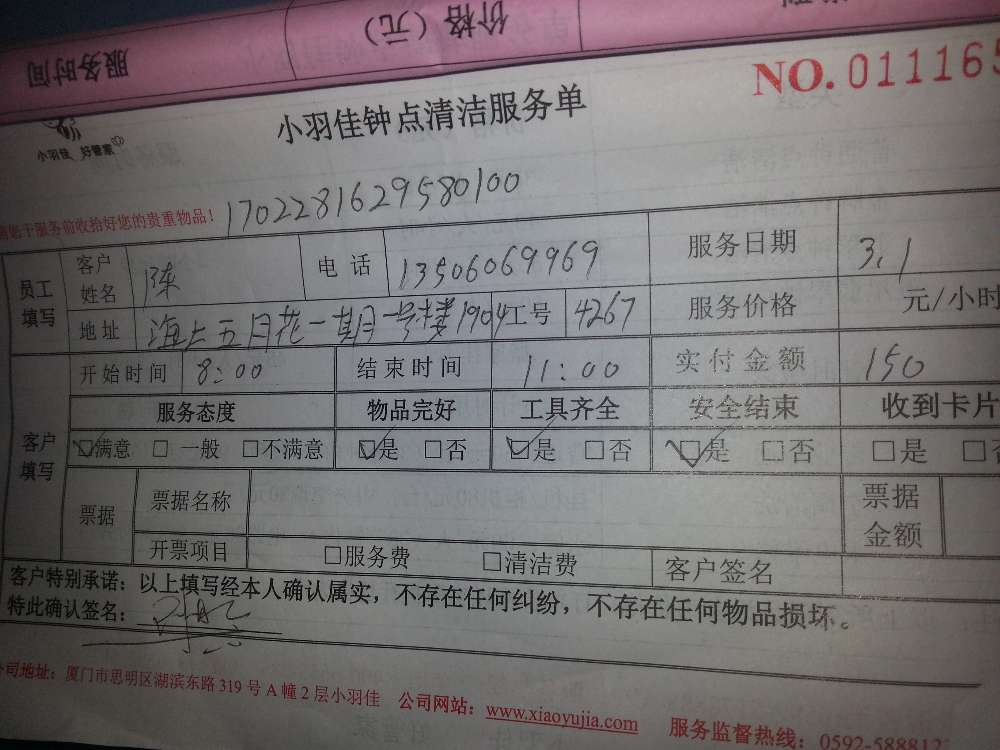 服务时间 价格（元）
NO. 011165
小羽佳 好管家
小羽佳钟点清洁服务单
服务前收拾好您的贵重物品！ 1702281629580100
员工填写 客户姓名 陈 电话 13506069969 服务日期 3.1
地址 海上五月花一期一号楼1904 工号 4267 服务价格 元/小时
客户填写 开始时间 8:00 结束时间 11:00 实付金额 150
服务态度 物品完好 工具齐全 安全结束 收到卡片
☑满意 □一般 □不满意 ☑是 □否 ☑是 □否 ☑是 □否 □是 □
票据 票据名称 票据金额
开票项目 □服务费 □清洁费 客户签名
客户特别承诺：以上填写经本人确认属实，不存在任何纠纷，不存在任何物品损坏。
特此确认签名：
公司地址：厦门市思明区湖滨东路319号A幢2层小羽佳 公司网站：www.xiaoyujia.com 服务监督热线：0592-588812